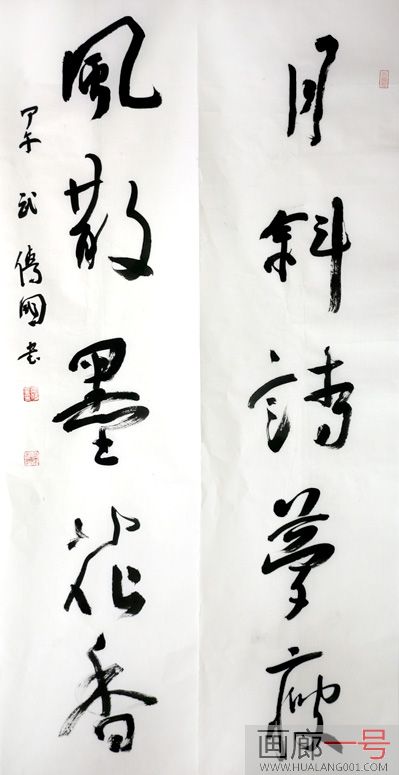 月斜詩夢瘦
風散墨花香
甲午 武傳國書
画廊一号
WWW.HUALANG001.COM